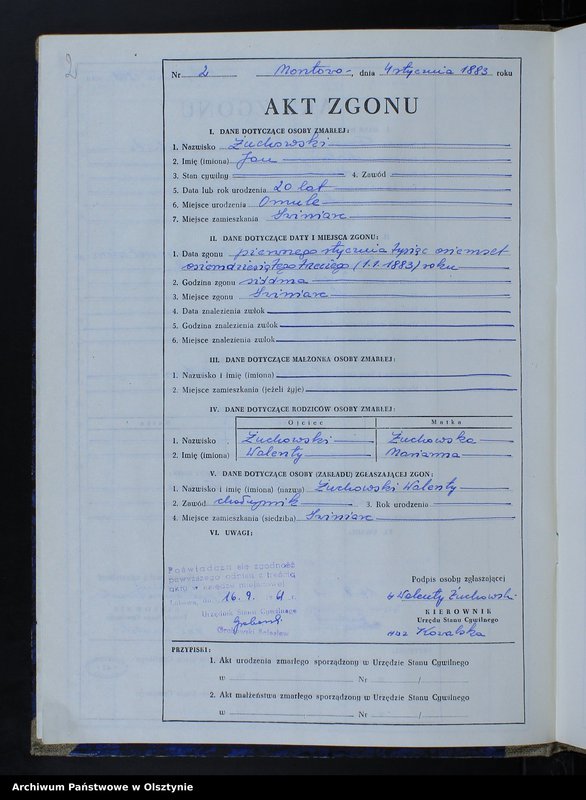 2
Nr 2 Montowo, dnia 4 stycznia 1883 roku
AKT ZGONU
I. DANE DOTYCZĄCE OSOBY ZMARŁEJ:
1. Nazwisko Żuchowski
2. Imię (imiona) Jan
3. Stan cywilny 4. Zawód
5. Data lub rok urodzenia 20 lat
6. Miejsce urodzenia Omule
7. Miejsce zamieszkania Swiniarc
II. DANE DOTYCZĄCE DATY I MIEJSCA ZGONU:
1. Data zgonu pierwszego stycznia tysiąc osiemset
osiemdziesiątego trzeciego (1.1.1883) roku
2. Godzina zgonu siódma
3. Miejsce zgonu Swiniarc
4. Data znalezienia zwłok
5. Godzina znalezienia zwłok
6. Miejsce znalezienia zwłok
III. DANE DOTYCZĄCE MAŁŻONKA OSOBY ZMARŁEJ:
1. Nazwisko i imię (imiona)
2. Miejsce zamieszkania (jeżeli żyje)
IV. DANE DOTYCZĄCE RODZICÓW OSOBY ZMARŁEJ:
Ojciec Matka
1. Nazwisko Żuchowski Żuchowska
2. Imię (imiona) Walenty Marianna
V. DANE DOTYCZĄCE OSOBY (ZAKŁADU) ZGŁASZAJĄCEJ ZGON:
1. Nazwisko i imię (imiona) (nazwa) Żuchowski Walenty
2. Zawód chałupnik 3. Rok urodzenia
4. Miejsce zamieszkania (siedziba) Swiniarc
VI. UWAGI:
Poświadcza się zgodność
powyższego odpisu z treścią
aktu w urzędzie
16. 9. 61 r.
Urzędnik Stanu Cywilnego
Podpis osoby zgłaszającej
Walenty Żuchowski
KIEROWNIK
Urzędu Stanu Cywilnego
Kowalska
PRZYPISKI:
1. Akt urodzenia zmarłego sporządzony w Urzędzie Stanu Cywilnego
w Nr /
2. Akt małżeństwa zmarłego sporządzony w Urzędzie Stanu Cywilnego
w Nr /
Archiwum Państwowe w Olsztynie